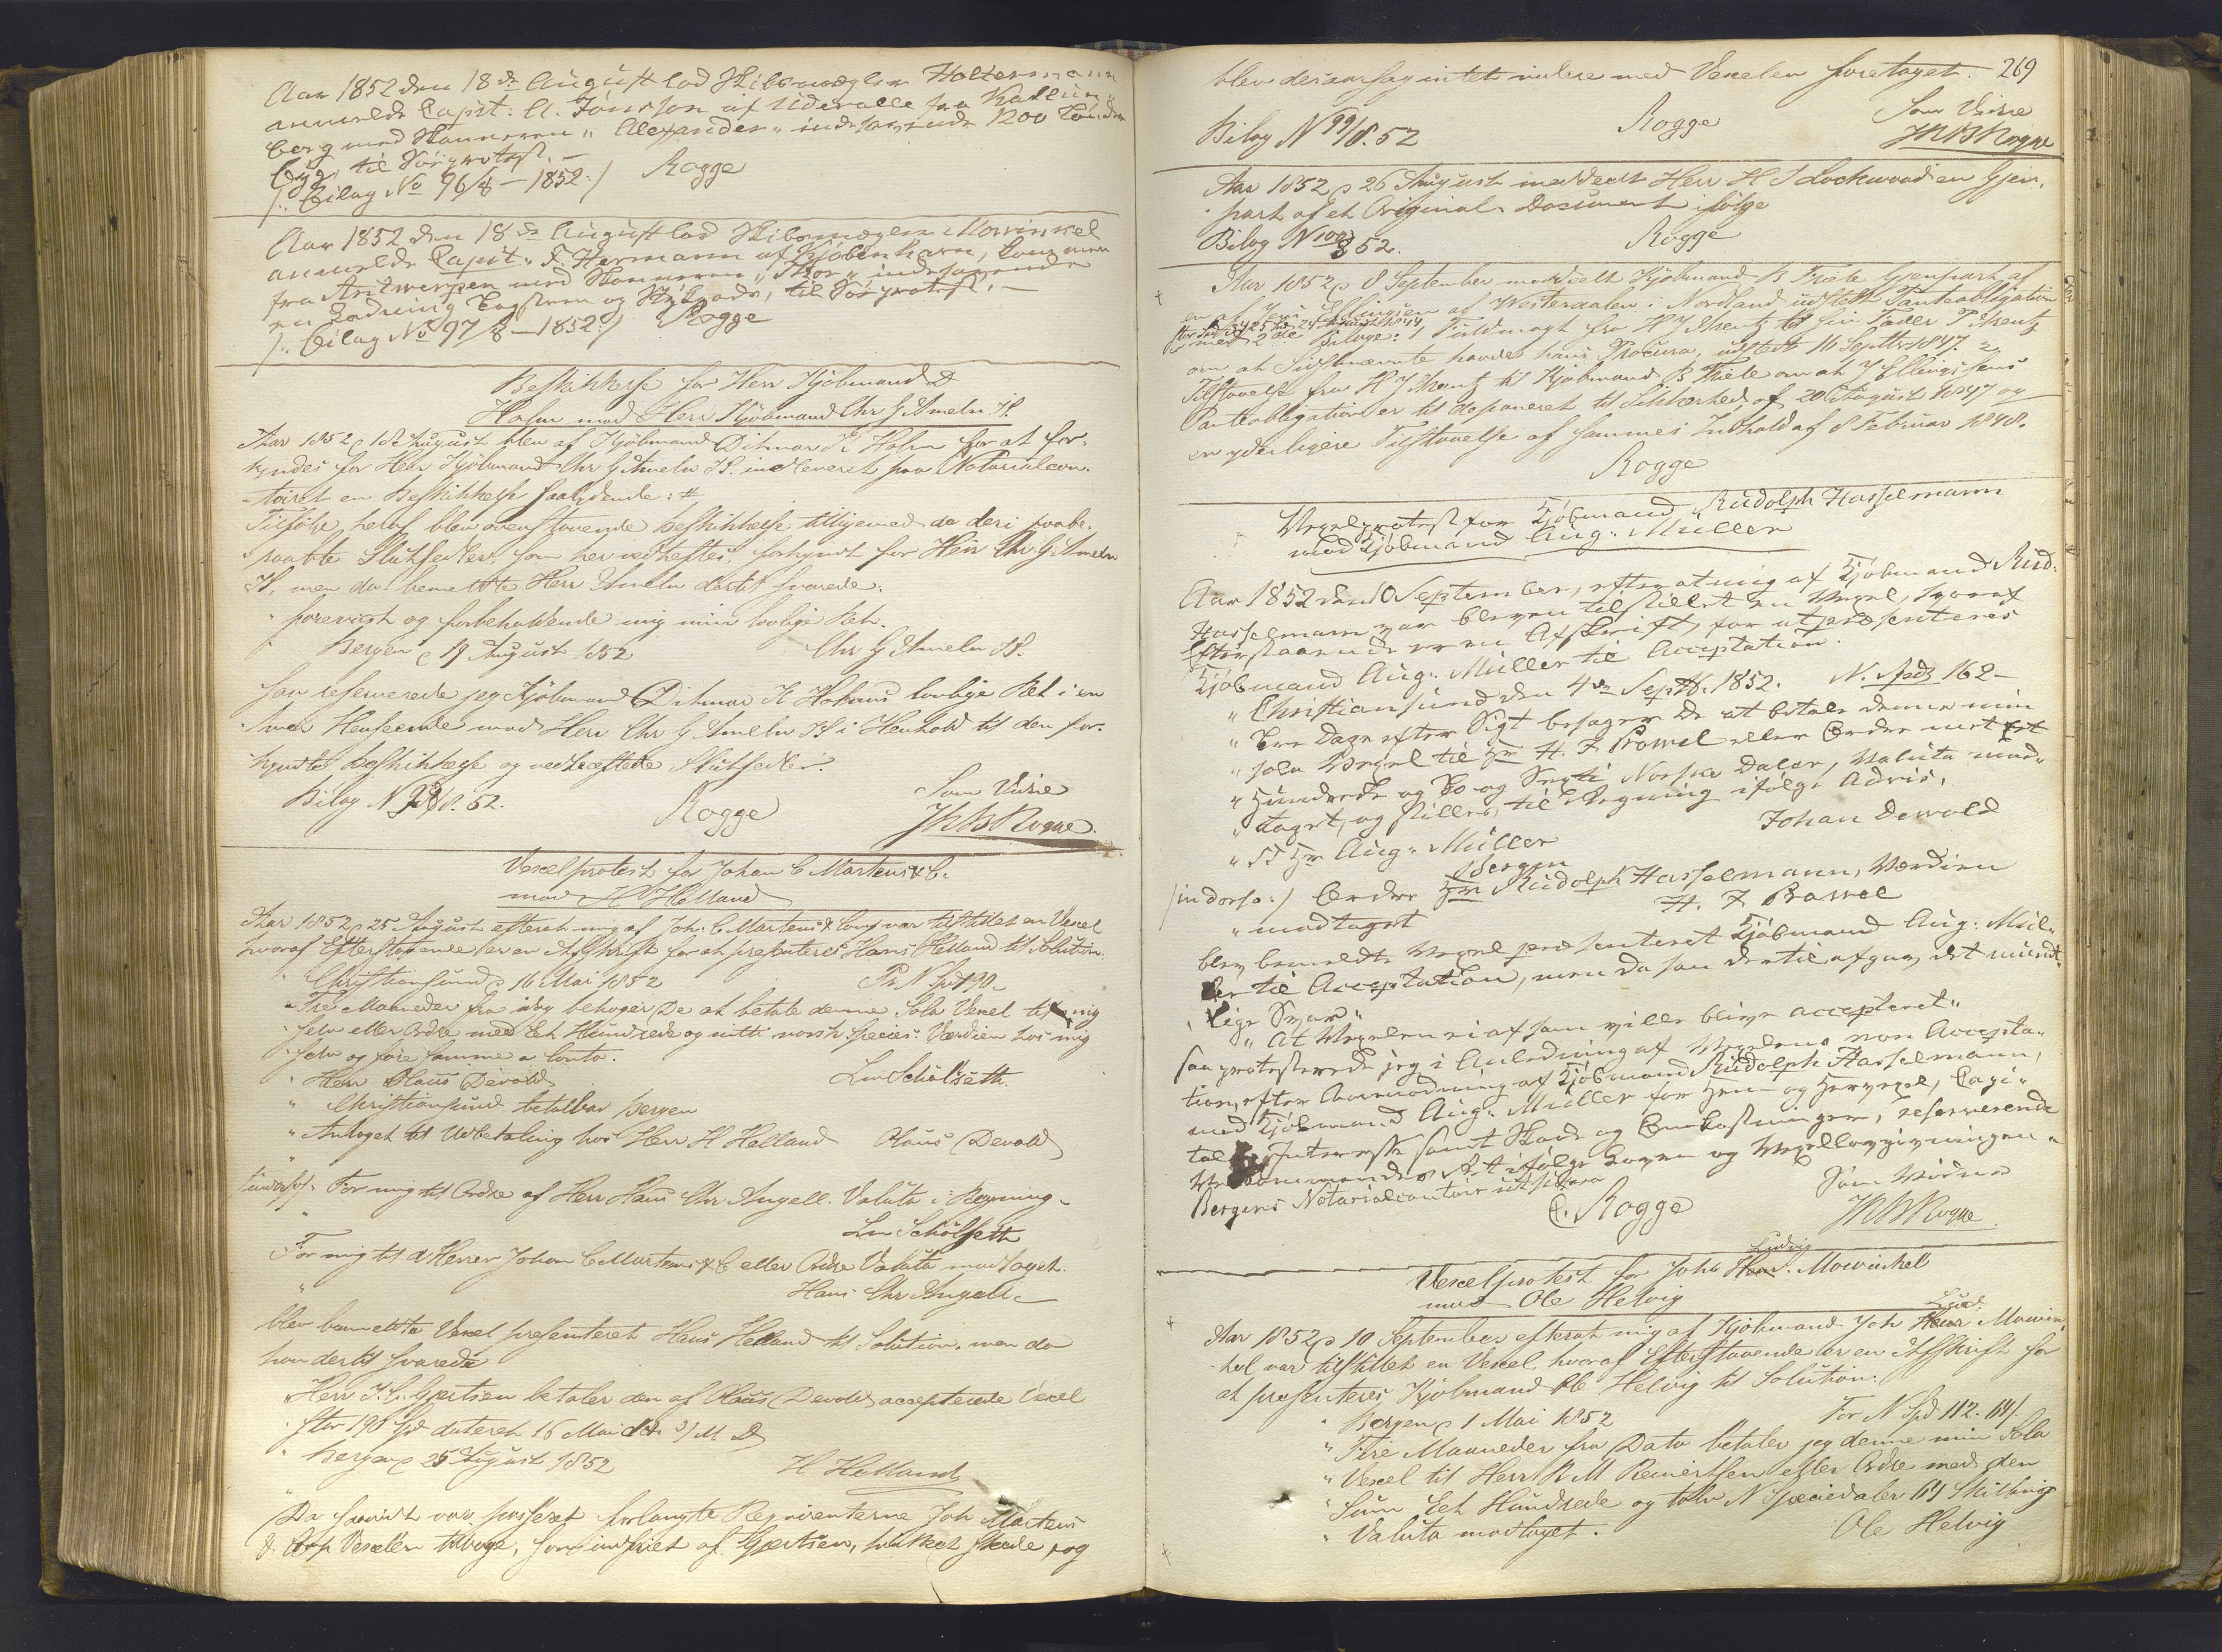 Aar 1852 den 18de August lod Skibsmægler Holtermann
anmelde Capit: A. Jönsson af Udevalle fra Kallund-
borg med Skonneren "Alexander" indehavende 1200 Tönder
Byg, til Söeprotest.—
/: Bilag No 96/8 – 1852 :/ Rogge
Aar 1852 den 18de August lod Skibsmægler Mowinkel
anmelde Capit. F. Hermann af Kjöbenhavn, kommen
fra Antwerpen med Skonneren "Thor" indehavende
en Ladning Tagsteen og Stykgods, til Söeprotest.—
/: Bilag No 97/8 – 1852 :/ Rogge
Beskikkelse for Herr Kjöbmand D
Holm mod Herr Kjöbmand Chr G Ameln St.
Aar 1852 d 18 August blev af Kjöbmand Ditmar K Holm for at for-
kyndes for Herr Kjöbmand Chr G Ameln St. indleveret paa Notarialcon-
toiret en Beskikkelse saalydende: #
Tilfölge heraf blev ovenstaaende Beskikkelse tilligemed de deri paabe-
raabte Slutsedler, som her vedheftes, forkyndt for Herr Chr G Ameln
St, men da bemeldte Herr Ameln dertil svarede:
" forevist og forbeholdende mig min lovlige Ret.
" Bergen d 19 August 1852 Chr G Ameln St.
saa reserverede jeg Kjöbmand Ditmar K Holms lovlige Ret i en
hver Henseende mod Herr Chr G Ameln St i Henhold til den for-
kyndte Beskikkelse og vedhæftede Slutsedler.
Bilag N 98/8.52. Rogge Som Vidne
JRBRogne
Vexelprotest for Johan C Martens & C.
mod H Helland
Aar 1852 d 25 August efterat mig af Joh: C Martens & Comp var tilstillet en Vexel
hvoraf Efterstaaende er en Afskrift for at presenteres Hans Helland til Solution.
" Christiansund d 16 Mai 1852 Pr. N Spd 190.
" Tre Maaneder fra idag behager De at betale denne Sola Vexel til mig
" selv eller Ordre med Et Hundrede og nitti norsk Species. Værdien hos mig
" selv og före samme a Conto.
" Herr Olaus Devold Lm Schölseth.
" Christiansund betalbar Bergen
" Antaget til Udbetaling hos Herr H Helland Olaus Devold
/indorso/: For mig til Ordre af Herr Hans Chr Angell. Valuta i Regning.
" Lm Schölseth
For mig til d Herrer Johan C Martens & C eller Ordre Valuta modtaget.
" Hans Chr Angell.
blev bemeldte Vexel presenteret Hans Helland til Solution, men da
han dertil svarede
" Herr J. C. Gjertsen betaler den af Olaus Devold accepterede Vexel
" stor 190 Spd dateret 16 Mai d.A. 3/M D
" Bergen d 25 August 1852 H Helland
Da Svaret var passeret forlangte Reqvirenterne Joh C Martens
& Comp Vexelen tilbage, som indfriet af Gjertsen, hvilket skede, og
269
blev desaarsag intet videre med Vexelen foretaget.
Bilag N 99/8.52 Rogge Som Vidne
JRBRogne
Aar 1852 d 26 August meddeelt Herr H S Lockwood en Gjen-
part af et Original-Document ifölge
Bilag N 100/8 52. Rogge
Aar 1852 d 8 September meddeelt Kjöbmand B Friele Gjenpart af
en af Jens Ellingsen af Westeraalen i Nordland udstedt Panteobligation
med 2de Bilage: 1, Fuldmagt fra H J Mentz til sin Fader P Mentz
om at Sidstnævnte havde hans Procura, udstedt 16 Septbr 1847. 2,
Tilstaaelse fra H J Mentz til Kjöbmand B Friele om at J Ellingsens
Panteobligation er til deponeret til Sikkerhed, af 20 August 1847 og
en yderligere Tilstaaelse af sammes Indhold af 8 Februar 1848.
Rogge
Vexelprotest for Kjöbmand Rudolph Hasselmann
mod Kjöbmand Aug: Müller
Aar 1852 den 10 September, efterat mig af Kjöbmand Rud:
Hasselmann var bleven tilstillet en Vexel, hvoraf
Efterstaaende er en Afskrift, for at præsenteres
Kjöbmand Aug: Müller til Acceptation.
" Christiansund den 4de Septb. 1852. N. Spd 162—
" Tre Dage efter Sigt behager De at betale denne min
" sola Vexel til Hr H. F. Prowel eller Ordre med Et
" Hundrede og To og Sexti Norske Daler, Valuta mod-
" taget, og stilles til Regning ifölge Advis.
" ST Hr Aug: Müller Johan Dewold
Bergen
/indorso:/ Ordre Hrr Rudolph Hasselmann, Værdien
" modtaget H. F. Prowel
blev bemeldte Vexel præsenteret Kjöbmand Aug: Mül-
ler til Acceptation, men da han dertil afgav det mundt-
lige Svar
" At Vexelen ei af ham ville blive accepteret"
saa protesterede jeg i Anledning af Vexelens non Accepta-
tion, efter Anmodning af Kjöbmand Rudolph Hasselmann,
mod Kjöbmand Aug: Müller for Hen- og Hervexel, Capi-
tal, Interesse samt Skade og Omkostninger, reserverende
Vedkommendes Ret ifölge Loven og Vexellovgivningen.
Bergens Notarialcontoir ut supra
C. Rogge Som Vidne
JRBRogne.
Vexelprotest for Joh: Ludvig Mowinckel
mod Ole Helvig
Aar 1852 d 10 September efterat mig af Kjöbmand Joh Lud: Mowin-
kel var tilstillet en Vexel, hvoraf Efterstaaende er en Afskrift for
at presenteres Kjöbmand Ole Helvig til Solution.
" Bergen d 1 Mai 1852 For N Spd 112. 114/.
" Fire Maaneder fra Dato betaler jeg denne min Sola
" Vexel til Herr R M Reinertsen eller Ordre med den
" Sum Eet Hundrede og tolv N Speciedaler 114 Skilling
" Valuta modtaget. Ole Helvig